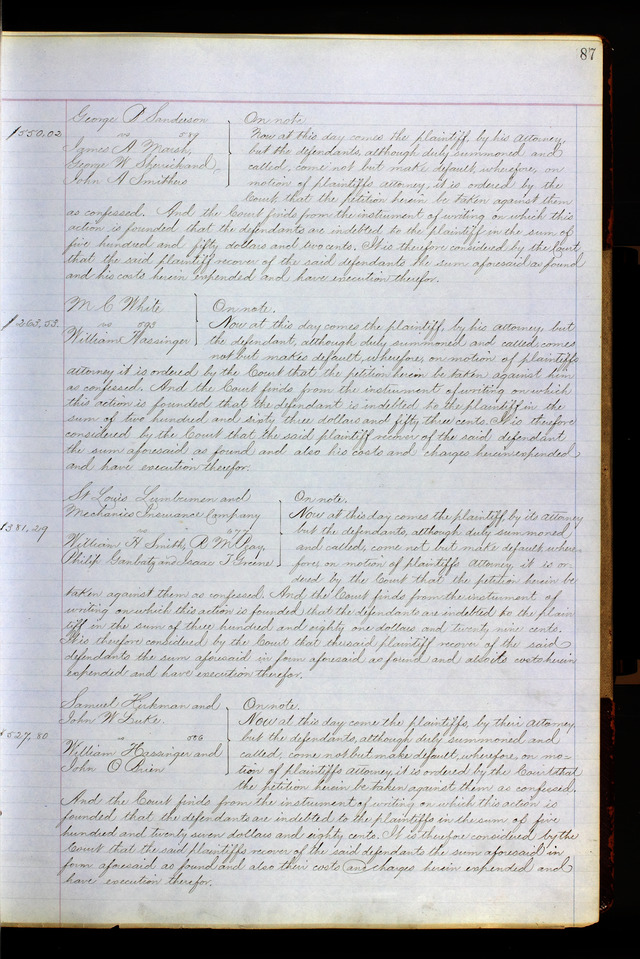 87
George P Sanderson
On note.
$550.02
vs 589
Now at this day comes the plaintiff, by his attorney,
James A Marsh,
but the defendants, although duly summoned and
George W
called, come not but make default, wherefore, on
John A Smithers
motion of plaintiffs attorney, it is ordered by the
Court that the petition herein be taken against them
as confessed. And the Court finds from the instrument of writing on which this
action is founded that the defendants are indebted to the plaintiff in the sum of
five hundred and fifty dollars and two cents. It is therefore considered by the Court
that the said plaintiff recover of the said defendants the sum aforesaid as found
and his costs herein expended and have execution therefor.
M C White
On note.
$263.53.
vs 593
Now at this day comes the plaintiff, by his attorney, but
William Hassinger
the defendant, although duly summoned and called comes
not but makes default, wherefore, on motion of plaintiffs
attorney it is ordered by the Court that the petition herein be taken against him
as confessed. And the Court finds from the instrument of writing on which
this action is founded that the defendant is indebted to the plaintiff in the
sum of two hundred and sixty three dollars and fifty three cents. It is therefore
considered by the Court that the said plaintiff recover of the said defendant
the sum aforesaid as found and also his costs and charges herein expended
and have execution therefor.
St Louis Lumbermen and
On note.
Mechanics Insurance Company
Now at this day comes the plaintiff, by its attorney
$381.29
vs 577
but the defendants, although duly summoned
William H Smith, R M
and called, come not but make default where-
Philip and Isaac T Greene
fore, on motion of plaintiffs attorney, it is or-
dered by the Court that the petition herein be
taken against them as confessed. And the Court finds from the instrument of
writing on which this action is founded that the defendants are indebted to the plain
tiff in the sum of three hundred and eighty one dollars and twenty nine cents.
It is therefore considered by the Court that the said plaintiff recover of the said
defendants the sum aforesaid in form aforesaid as found and also its costs herein
expended and have execution therefor.
Samuel Hickman and
On note.
John W Luke.
Now at this day come the plaintiffs, by their attorney
$527.80
vs 586
but the defendants, although duly summoned and
William Hassinger and
called, come not but make default, wherefore, on mo-
John O Brien
tion of plaintiffs attorney, it is ordered by the Court that
the petition herein be taken against them as confessed.
And the Court finds from the instrument of writing on which this action is
founded that the defendants are indebted to the plaintiffs in the sum of five
hundred and twenty seven dollars and eighty cents. It is therefore considered by the
Court that the said plaintiffs recover of the said defendants the sum aforesaid in
form aforesaid as found and also their costs and charges herein expended and
have execution therefor.